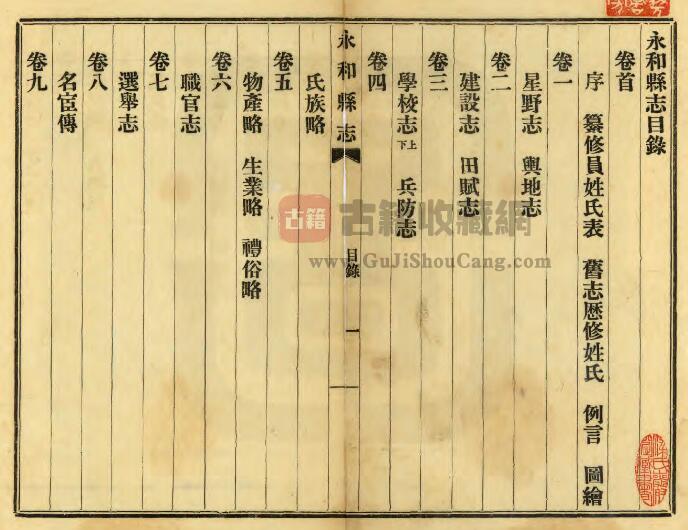 永和縣志目錄
卷首
序 纂修員姓氏表 舊志歷修姓氏 例言 圖繪
卷一
星野志 輿地志
卷二
建設志 田賦志
卷三
學校志上下 兵防志
卷四
永和縣志
目錄
一
氏族略
卷五
物產略 生業略 禮俗略
卷六
職官志
卷七
選舉志
卷八
名宦傳
卷九
古籍
古籍收藏網
www.GuJiShouCang.com